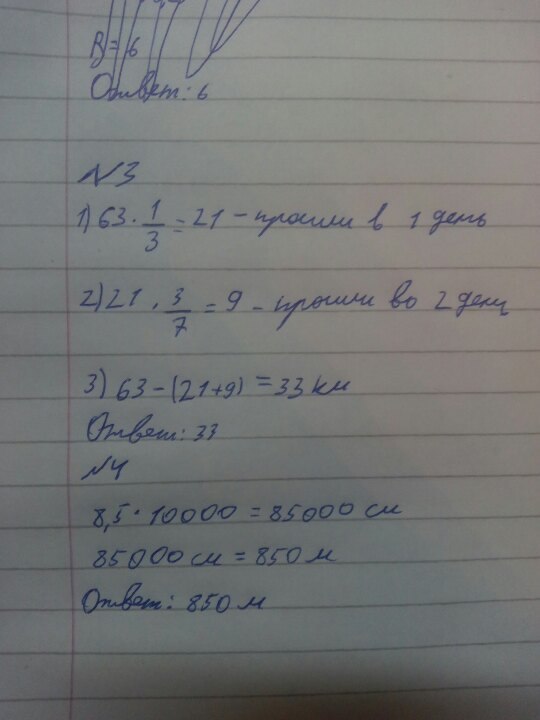 В = 6
Ответ: 6
№3
1) 63 · 1/3 = 21 - прошли в 1 день
2) 21 · 3/7 = 9 - прошли во 2 день
3) 63 - (21+9) = 33 км
Ответ: 33
№4
8,5 · 10000 = 85000 см
85000 см = 850 м
Ответ: 850 м